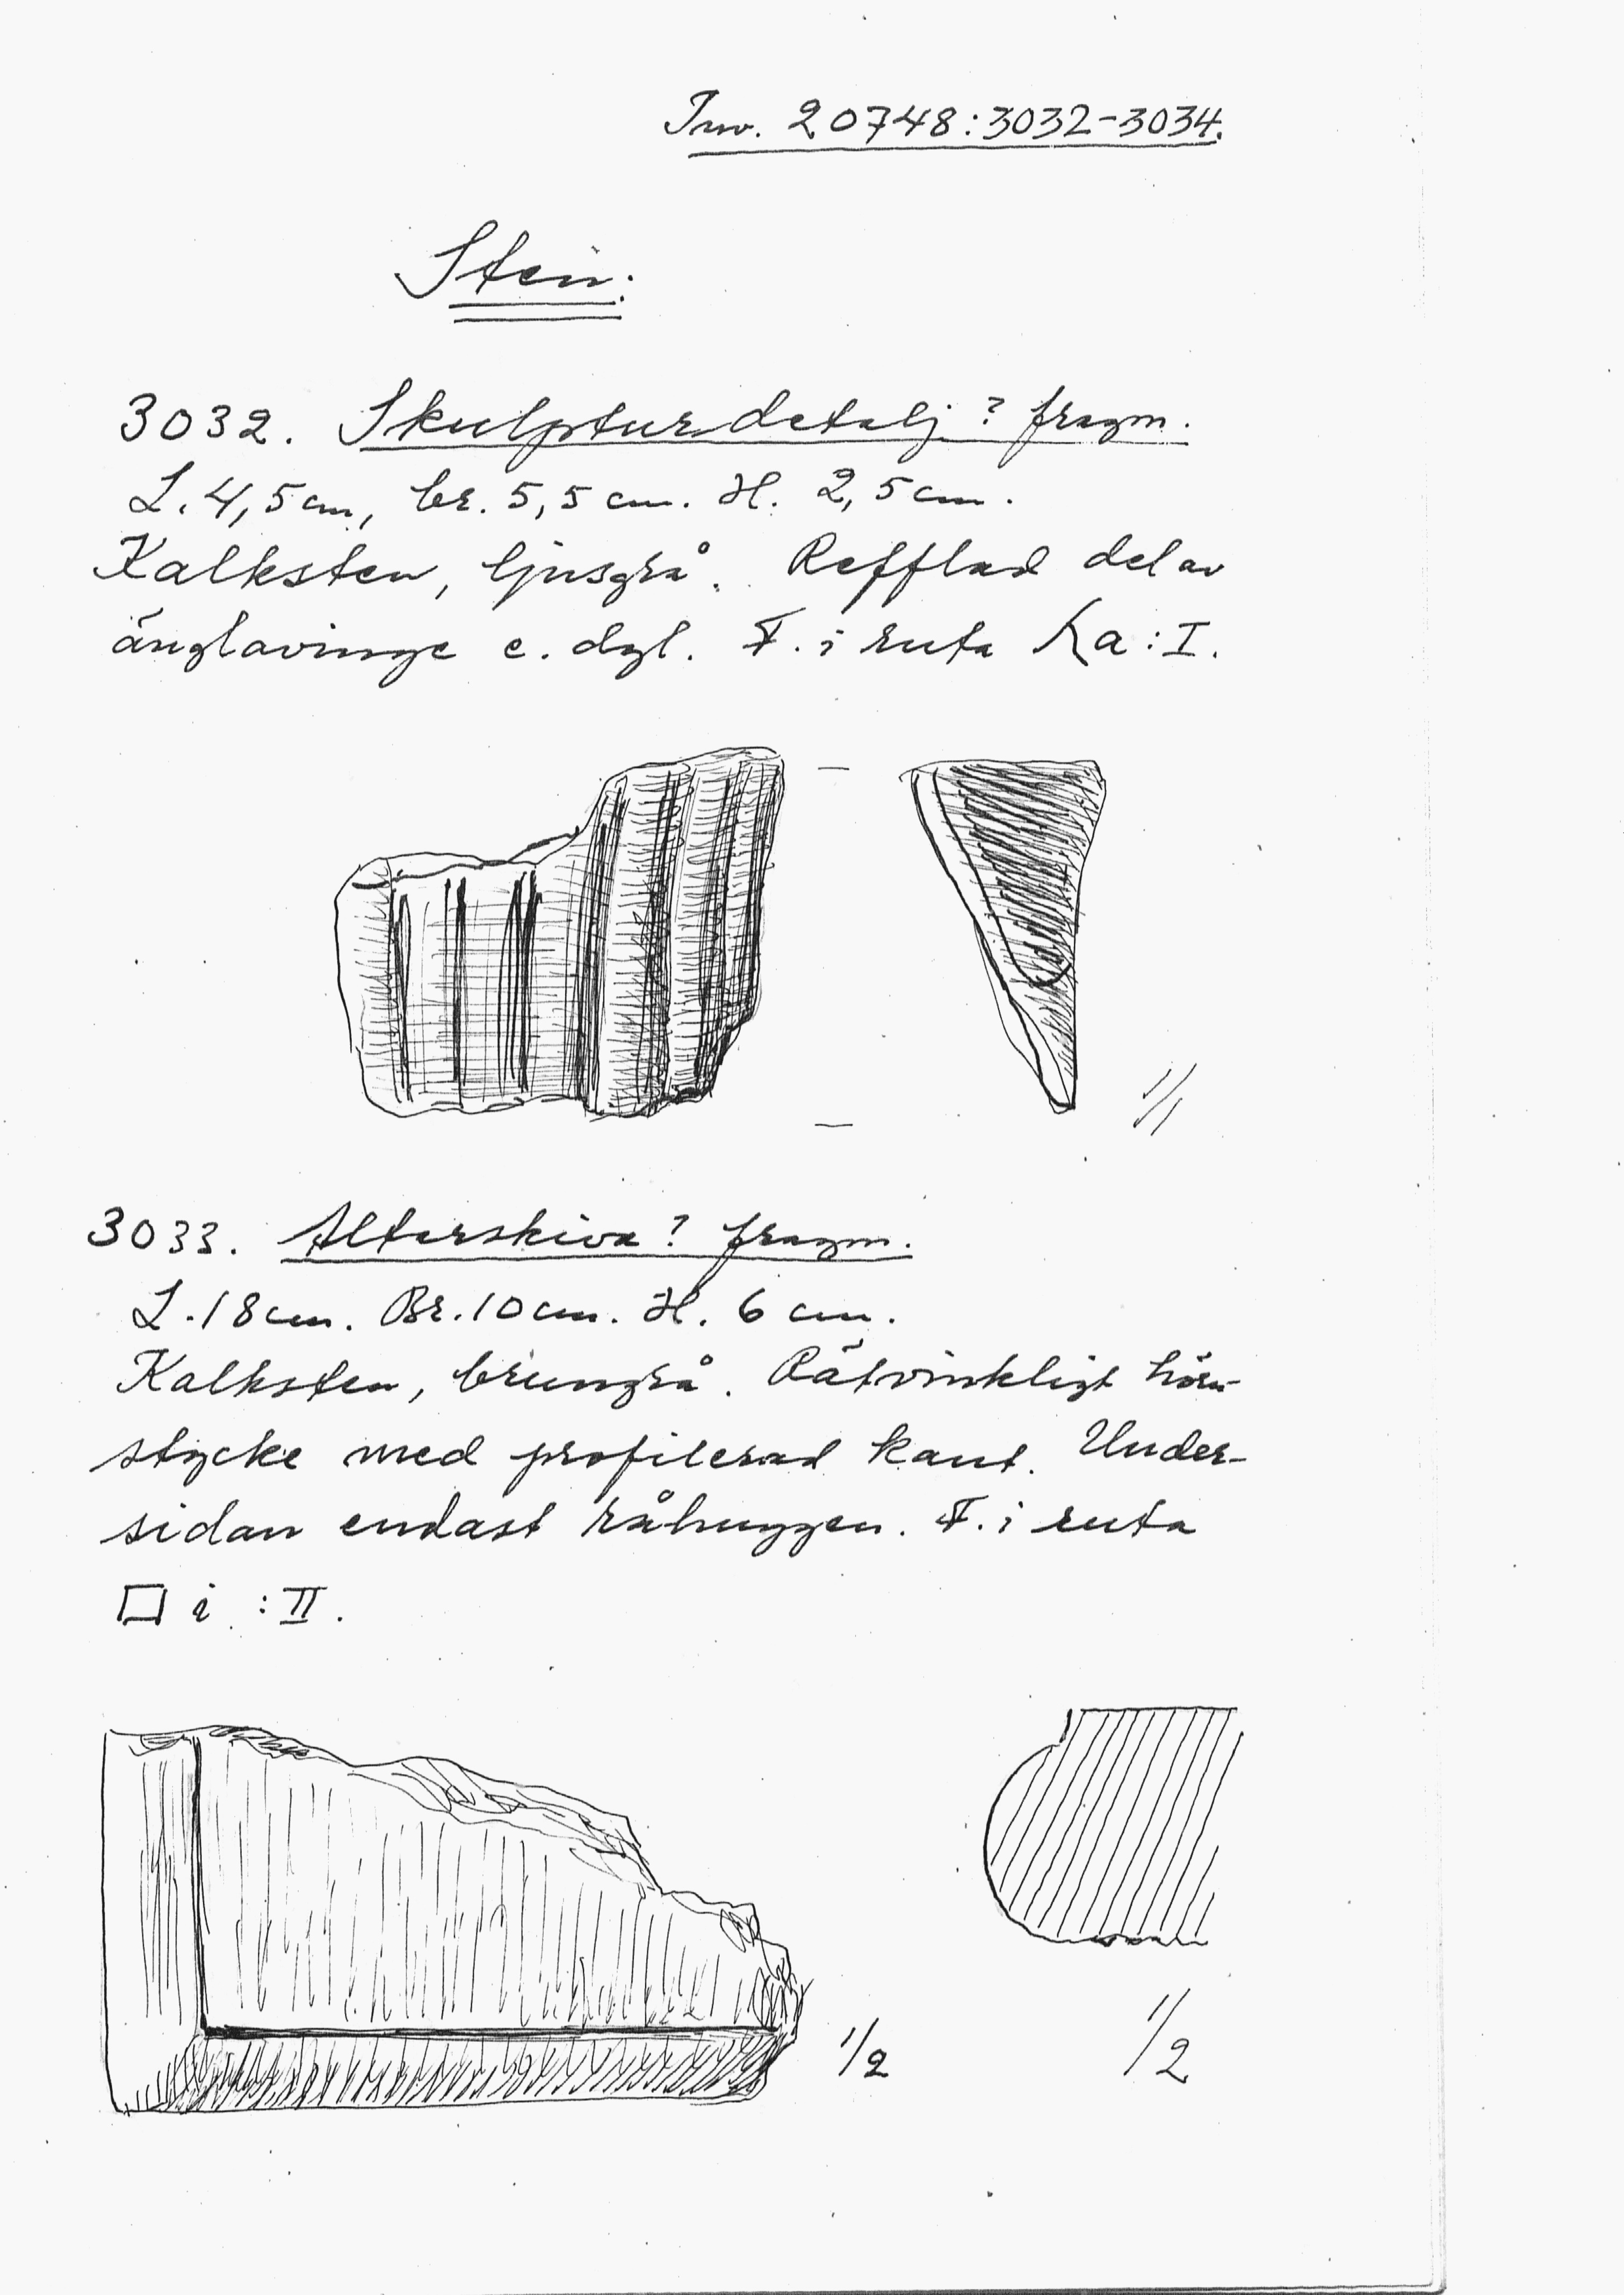 Inv. 20748:3032-3034.
Sten:
3032. Skulpturdetalj? fragm.
L. 4,5 cm, br. 5,5 cm. H. 2,5 cm.
Kalksten, ljusgrå. Refflad del av
änglavinge e. dyl. F. i ruta a:I.
1/1
3033. Altarskiva? fragm.
L. 18 cm. Br. 10 cm. H. 6 cm.
Kalksten, brungrå. Rätvinkligt hörn-
stycke med profilerad kant. Under-
sidan endast råhuggen. F. i ruta
□ i :II.
1/2 1/2